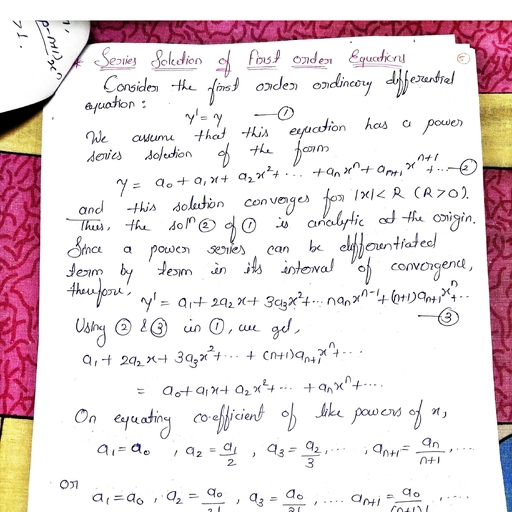 p-n+1) x^n
>1.
* Series Solution of First Order Equations
Consider the first order ordinary differential
equation:
y' = y —①
We assume that this equation has a power
series solution of the form
y = a₀ + a₁x + a₂x² + ... + aₙxⁿ + aₙ₊₁xⁿ⁺¹ + ... —②
and this solution converges for |x| < R (R > 0).
Thus, the solⁿ ② of ① is analytic at the origin.
Since a power series can be differentiated
term by term in its interval of convergence,
therefore,
y' = a₁ + 2a₂x + 3a₃x² + ... naₙxⁿ⁻¹ + (n+1)aₙ₊₁xⁿ + ...
—③
Using ② & ③ in ①, we get,
a₁ + 2a₂x + 3a₃x² + ... + (n+1)aₙ₊₁xⁿ + ...
= a₀ + a₁x + a₂x² + ... + aₙxⁿ + ...
On equating co-efficient of like powers of x,
a₁ = a₀ , a₂ = a₁/2 , a₃ = a₂/3 , ... , aₙ₊₁ = aₙ/(n+1) , ...
or
a₁ = a₀ , a₂ = a₀/2! , a₃ = a₀/3! , ... aₙ₊₁ = a₀/(n+1)! , ...